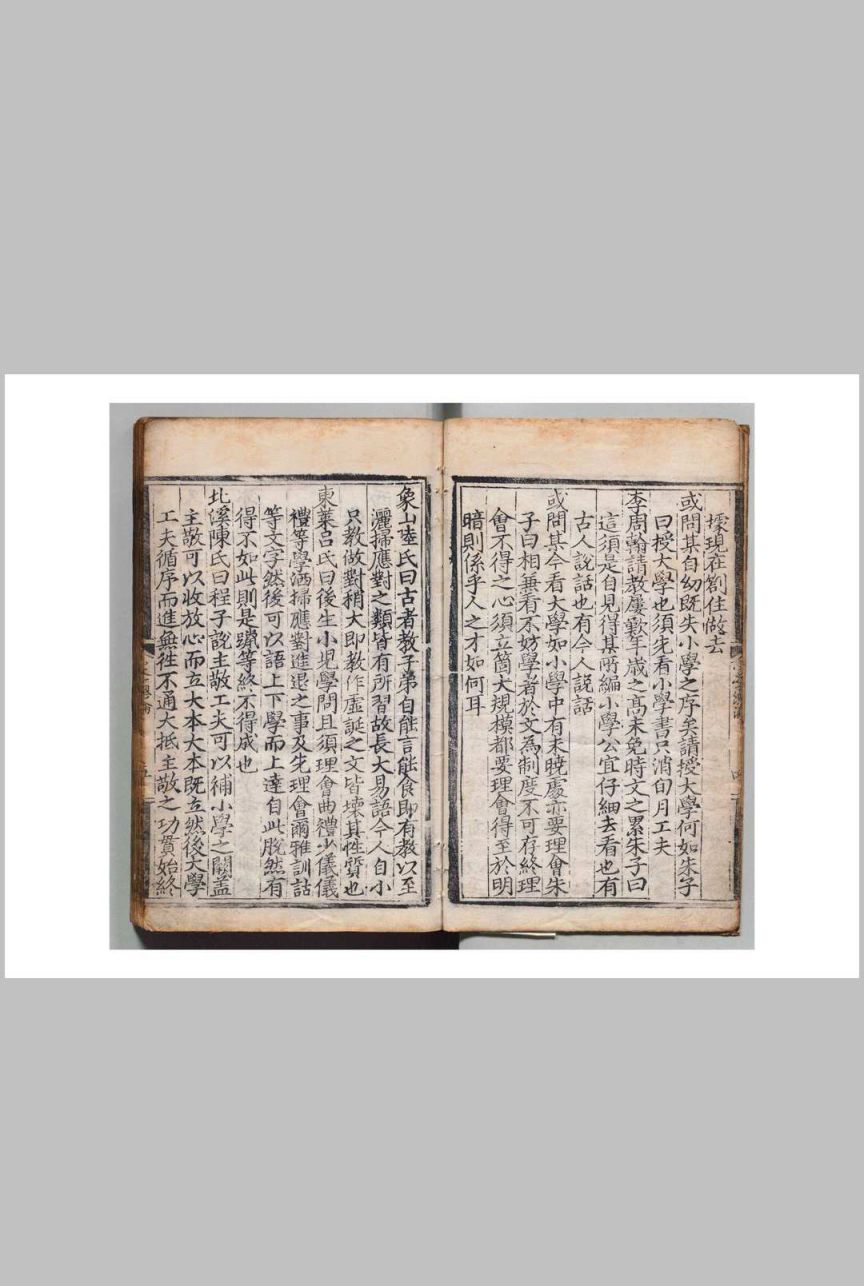 據現在劄住做去
或問某自幼既失小學之序矣請授大學何如朱子
曰授大學也須先看小學書只消旬月工夫
李周翰請教屢歎年歲之高未免時文之累朱子曰
這須是自見得某所編小學公宜仔細去看也有
古人說話也有今人說話
或問某今看大學如小學中有未曉處亦要理會朱
子曰相兼看不妨學者於文為制度不可存終理
會不得之心須立箇大規模都要理會得至於明
暗則係乎人之才如何耳
象山陸氏曰古者教子弟自能言能食即有教以至
灑掃應對之類皆有所習故長大易語今人自小
只教做對稍大即教作虛誕之文皆壞其性質也
東萊呂氏曰後生小児學問且須理會曲禮少儀儀
禮等學洒掃應對進退之事及先理會爾雅訓詁
等文字然後可以語上下學而上達自此脫然有
得不如此則是躐等終不得成也
北溪陳氏曰程子說主敬工夫可以補小學之闕蓋
主敬可以收放心而立大本大本既立然後大學
工夫循序而進無往不通大抵主敬之功貫始終